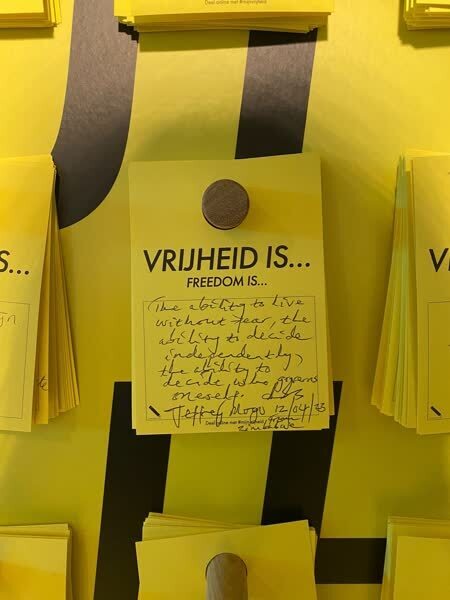 Deel online met #mijnvrijheid
S...
VRIJHEID IS...
FREEDOM IS...
The ability to live
without fear, the
ability to decide
independently,
the ability to
decide who governs
oneself.
Jeffrey Moyo 12/04/23
from
Zimbabwe
Deel online met #mijnvrijheid
V